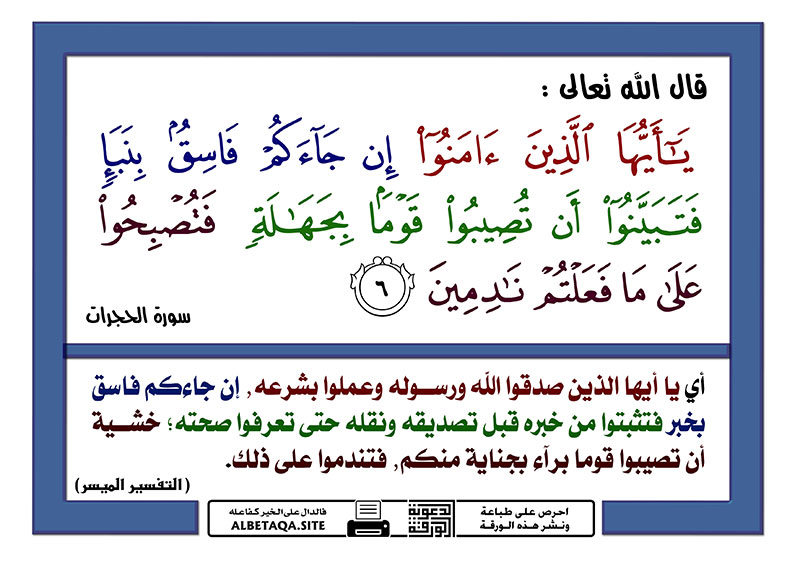 قال الله تعالى :
يَـٰٓأَيُّهَا ٱلَّذِينَ ءَامَنُوٓا۟ إِن جَآءَكُمْ فَاسِقٌۢ بِنَبَإٍۢ
فَتَبَيَّنُوٓا۟ أَن تُصِيبُوا۟ قَوْمًۢا بِجَهَـٰلَةٍۢ فَتُصْبِحُوا۟
عَلَىٰ مَا فَعَلْتُمْ نَـٰدِمِينَ ٦
سورة الحجرات
أي يا أيها الذين صدقوا الله ورسوله وعملوا بشرعه, إن جاءكم فاسق
بخبر فتثبتوا من خبره قبل تصديقه ونقله حتى تعرفوا صحته؛ خشية
أن تصيبوا قوما برآء بجناية منكم, فتندموا على ذلك.
(التفسير الميسر)
احرص على طباعة
ونشر هذه الورقة
الورقة
الدعوية
فالدال على الخير كفاعله
ALBETAQA.SITE